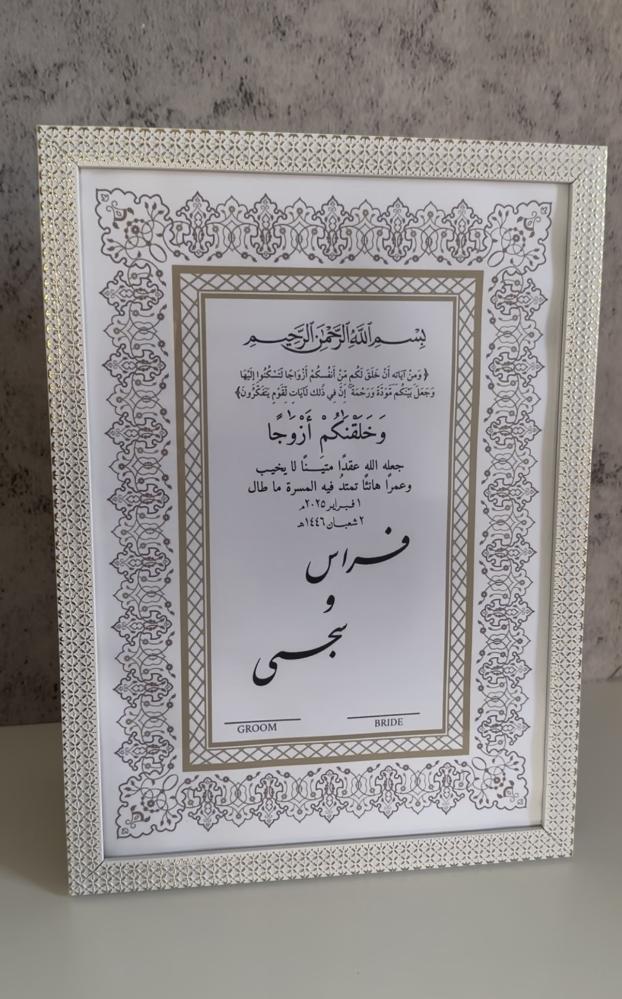 بِسْمِ اللَّهِ الرَّحْمَنِ الرَّحِيمِ
﴿ وَمِنْ آيَاتِهِ أَنْ خَلَقَ لَكُم مِّنْ أَنفُسِكُمْ أَزْوَاجًا لِّتَسْكُنُوا إِلَيْهَا
وَجَعَلَ بَيْنَكُم مَّوَدَّةً وَرَحْمَةً إِنَّ فِي ذَلِكَ لَآيَاتٍ لِّقَوْمٍ يَتَفَكَّرُونَ﴾
وَخَلَقْنَٰكُمْ أَزْوَٰجًا
جعله الله عقدًا متينًا لا يخيب
وعمرًا هانئًا تمتدُ فيه المسرة ما طال
١ فبراير ٢٠٢٥م
٢ شعبان ١٤٤٦هـ
فراس
و
سجى
GROOM BRIDE